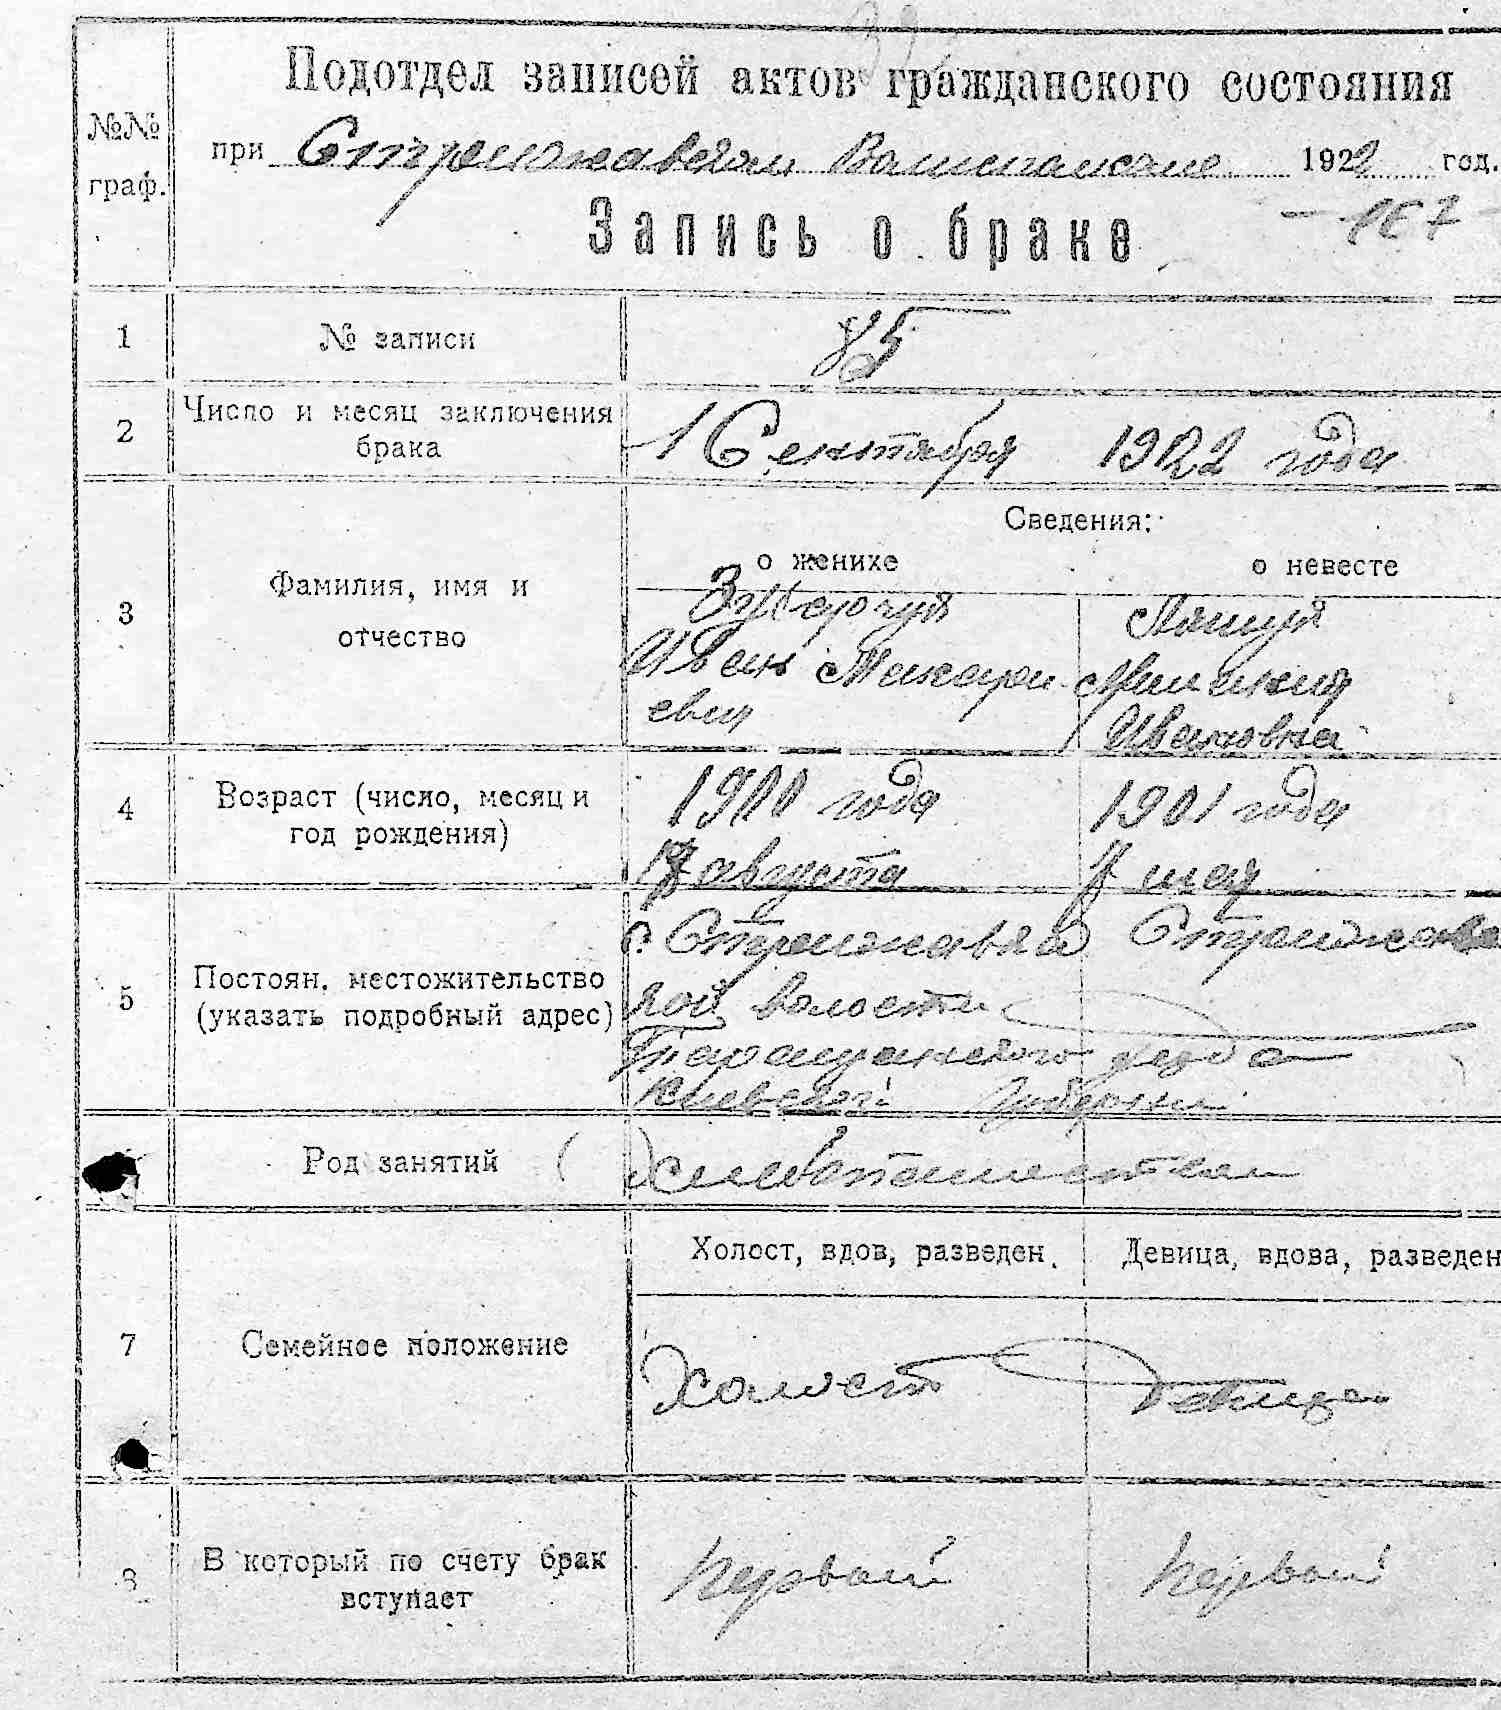 №№
граф.
Подотдел записей актов гражданского состояния
при 1922 год.
Запись о браке
1
№ записи
85
2
Число и месяц заключения
брака
1 Сентября 1922 года
Сведения:
о женихе
о невесте
3
Фамилия, имя и
отчество
Иван Макари
евич
Ивановна
4
Возраст (число, месяц и
год рождения)
1900 года
августа
1901 года
7 мая
5
Постоян. местожительство
(указать подробный адрес)
с. Стрижавка Стрижавс
кой волости
Таращанского уезда
Киевской Губернии
Род занятий
хлебопашеством
7
Семейное положение
Холост, вдов, разведен.
Девица, вдова, разведен
Холост
Девица
8
В который по счету брак
вступает
Первый
Первый